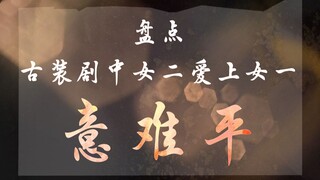 盘点
古装剧中女二爱上女一
意难平